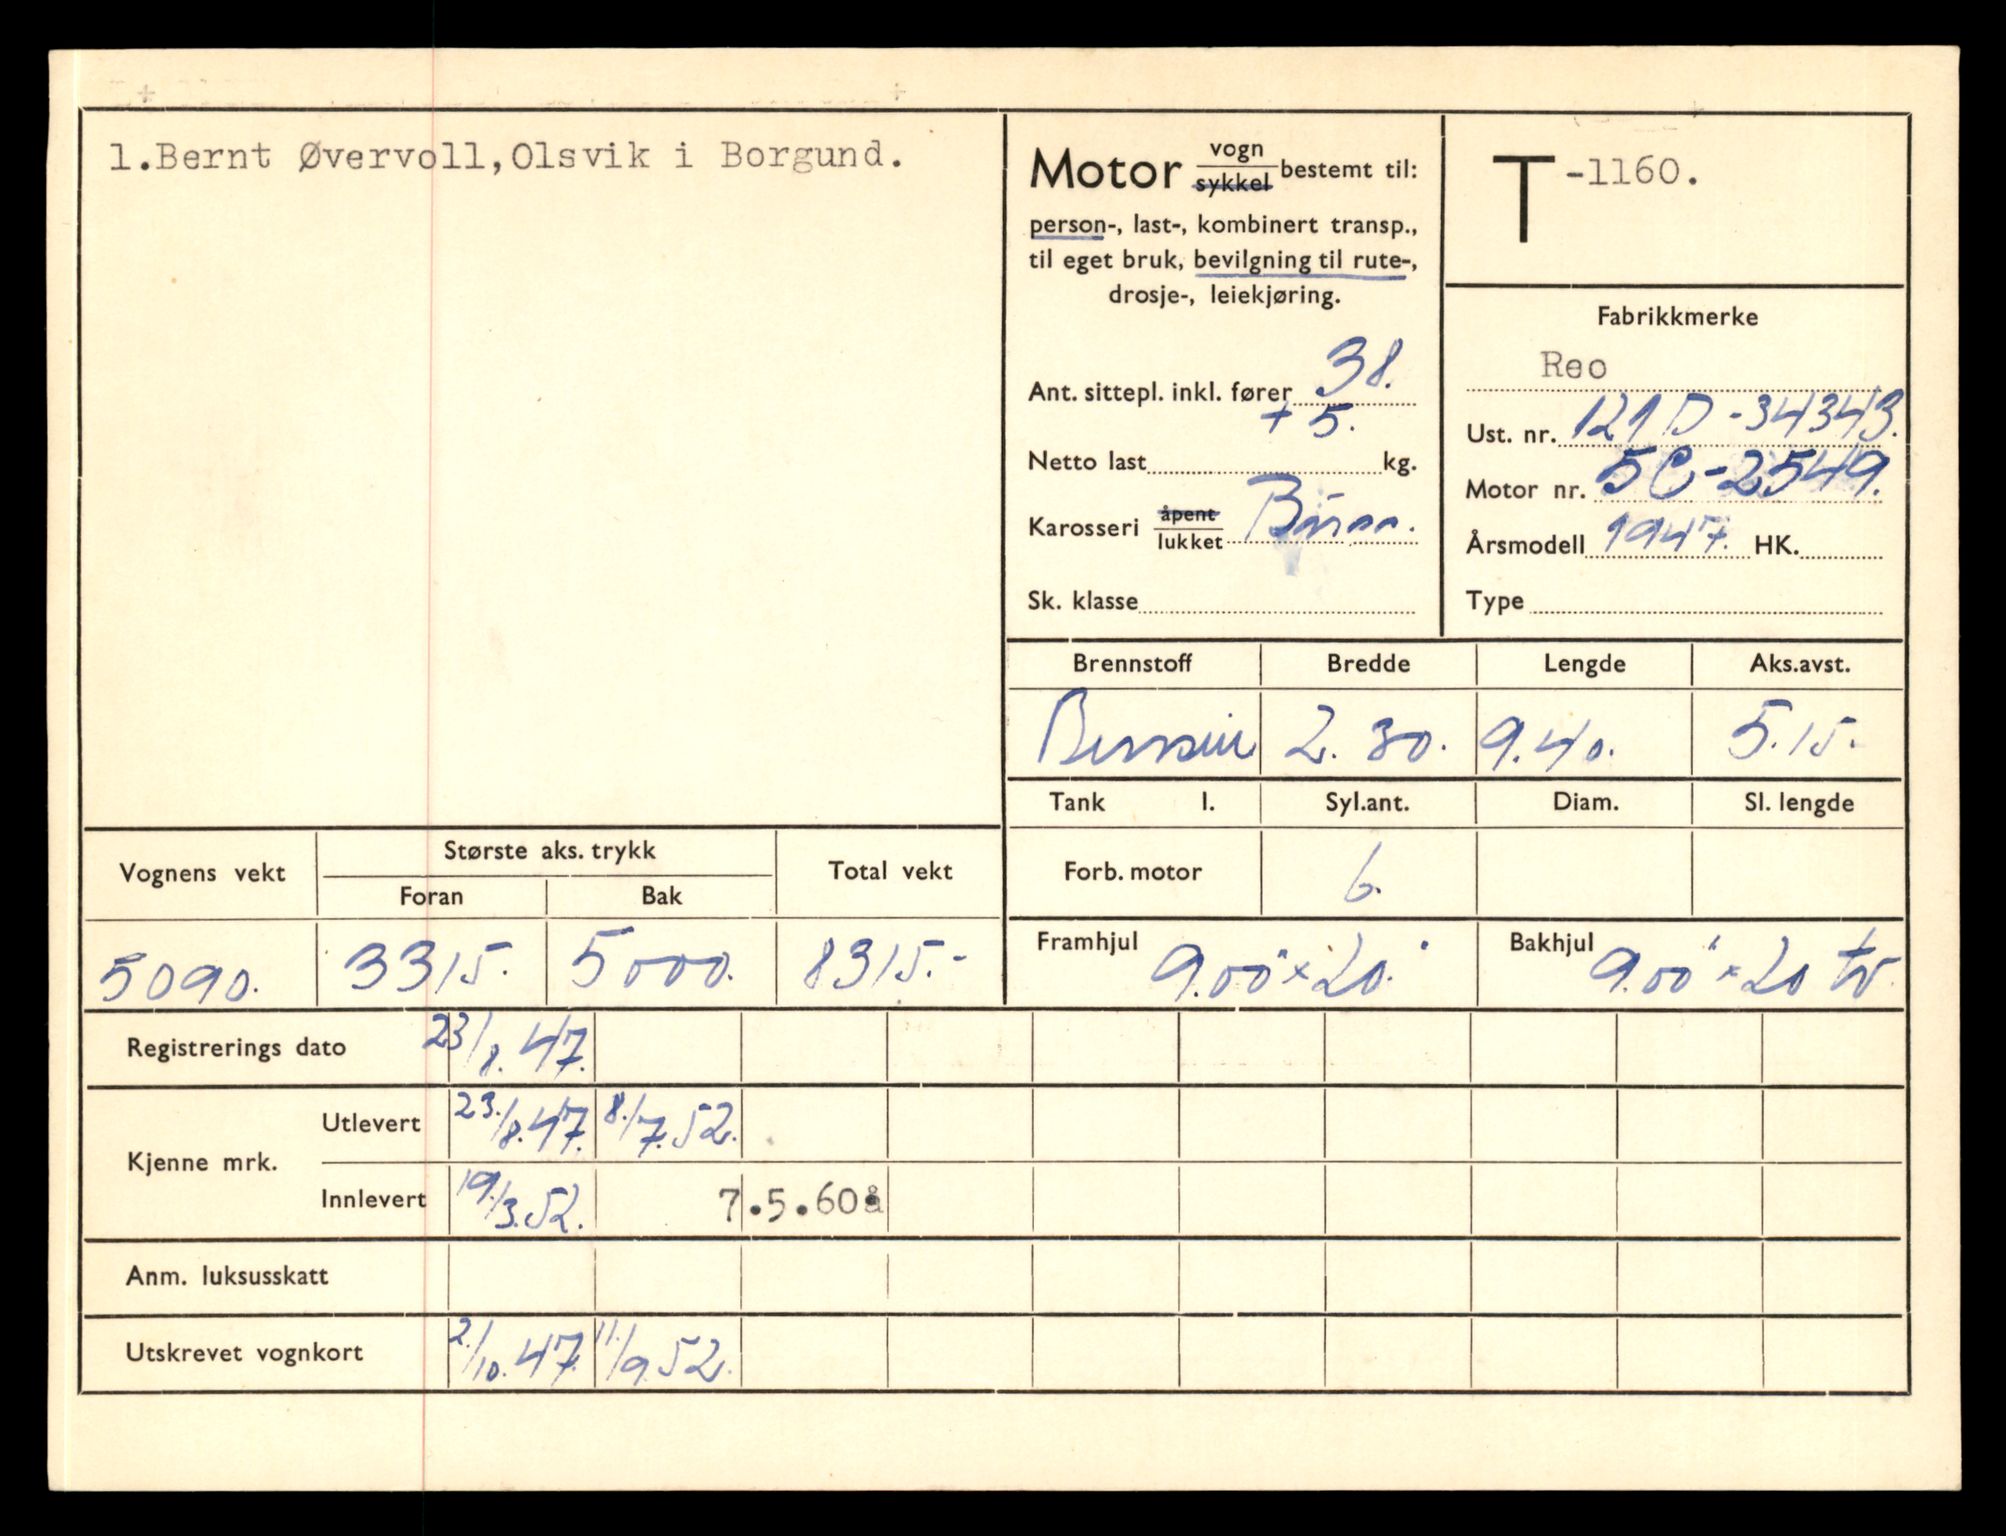 1.Bernt Øvervoll,Olsvik i Borgund.
Motor vogn sykkel bestemt til:
person-, last-, kombinert transp.,
til eget bruk, bevilgning til rute-,
drosje-, leiekjøring.
Ant. sittepl. inkl. fører 38.
+ 5.
Netto last kg.
Karosseri åpent lukket
Sk. klasse
T -1160.
Fabrikkmerke
Reo
Ust. nr. 121 D - 34343.
Motor nr. 5C-2549.
Årsmodell 1947. HK.
Type
Brennstoff Bredde Lengde Aks.avst.
Bensin 2.30. 9.40. 5.15.
Tank l. Syl.ant. Diam. Sl. lengde
Forb. motor 6.
Framhjul 9.00"×20." Bakhjul 9.00"×20 tv.
Vognens vekt Største aks. trykk Total vekt
Foran Bak
5090. 3315. 5000. 8315.-
Registrerings dato 23/8.47.
Kjenne mrk.
Utlevert 23./8.47. 8./7.52.
Innlevert 19./3.52. 7.5.60å
Anm. luksusskatt
Utskrevet vognkort 2./10.47. 11./9.52.